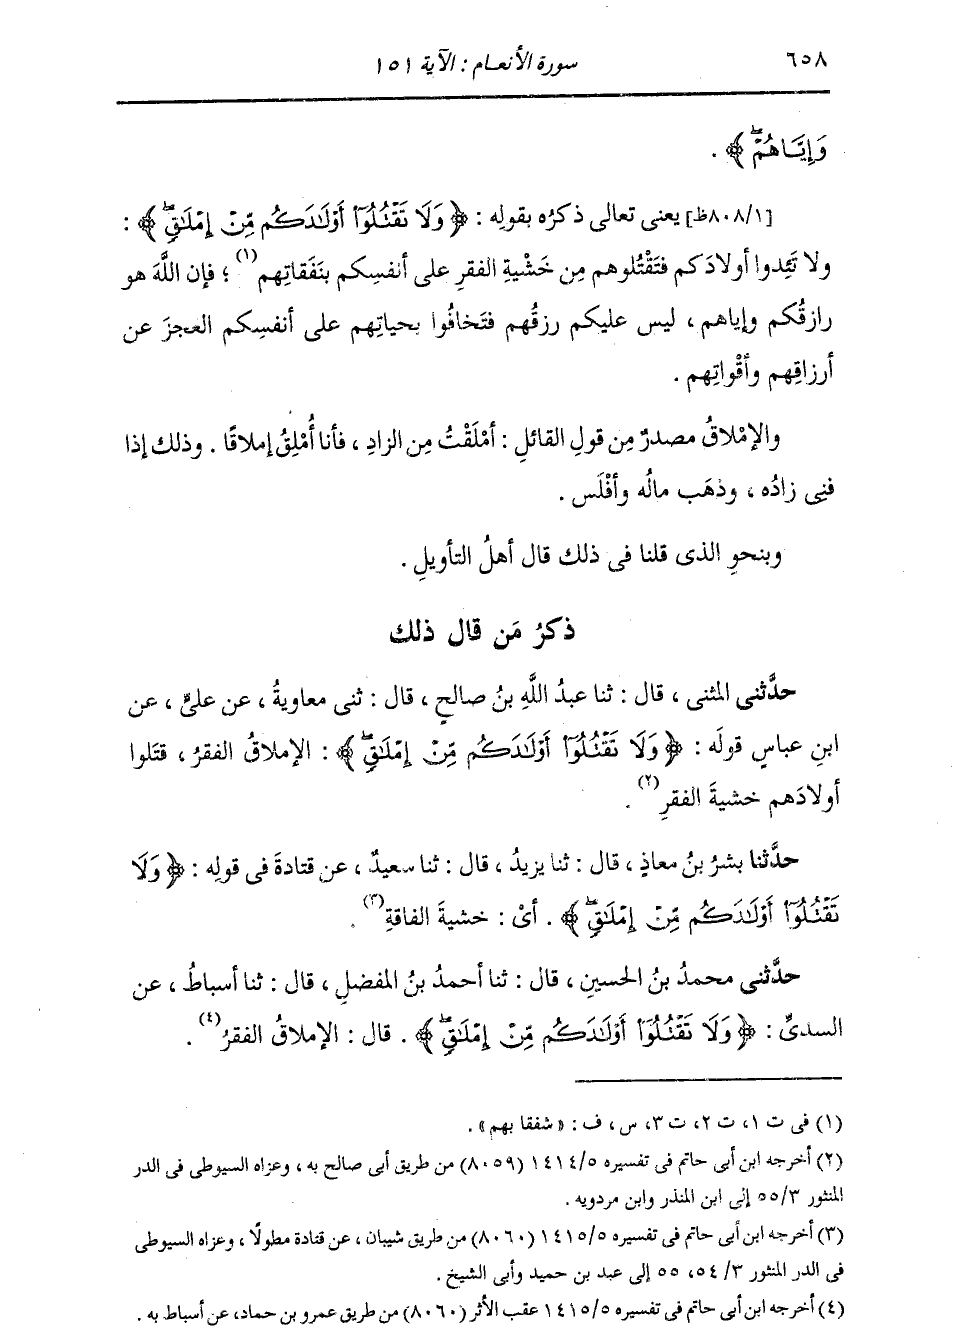 ٦٥٨ سورة الأنعام : الآية ١٥١
وَإِيَّاهُمْۖ﴾ .
[٨٠٨/١ظ] يعنى تعالى ذكرُه بقولِه : ﴿وَلَا تَقْتُلُوٓا أَوْلَٰدَكُم مِّنْ إِمْلَٰقٍۖ﴾ :
ولا تَئِدوا أولادَكم فتَقْتُلوهم مِن خَشْيةِ الفقرِ على أنفسِكم بنَفَقاتِهم (١) ؛ فإن اللَّهَ هو
رازقُكم وإياهم ، ليس عليكم رزقُهم فتَخافُوا بحياتِهم على أنفسِكم العجزَ عن
أرزاقِهم وأقْواتِهم .
والإمْلاقُ مصدرٌ مِن قولِ القائلِ : أمْلَقْتُ مِن الزادِ ، فأنا أُمْلِقُ إملاقًا . وذلك إذا
فنِى زادُه ، وذهَب مالُه وأفْلَس .
وبنحوِ الذى قلنا فى ذلك قال أهلُ التأويلِ .
ذكرُ مَن قال ذلك
حدَّثنى المثنى ، قال : ثنا عبدُ اللَّهِ بنُ صالحٍ ، قال : ثنى معاويةُ ، عن علىٍّ ، عن
ابنِ عباسٍ قولَه : ﴿وَلَا تَقْتُلُوٓا أَوْلَٰدَكُم مِّنْ إِمْلَٰقٍۖ﴾ : الإملاقُ الفقرُ ، قتَلوا
أولادَهم خشيةَ الفقرِ (٢) .
حدَّثنا بشرُ بنُ معاذٍ ، قال : ثنا يزيدُ ، قال : ثنا سعيدٌ ، عن قتادةَ فى قولِه : ﴿وَلَا
تَقْتُلُوٓا أَوْلَٰدَكُم مِّنْ إِمْلَٰقٍۖ﴾ . أىْ : خشيةَ الفاقةِ (٣) .
حدَّثنى محمدُ بنُ الحسينِ ، قال : ثنا أحمدُ بنُ المفضلِ ، قال : ثنا أسباطُ ، عن
السدىِّ : ﴿وَلَا تَقْتُلُوٓا أَوْلَٰدَكُم مِّنْ إِمْلَٰقٍۖ﴾ . قال : الإملاقُ الفقرُ (٤) .
(١) فى ت ١، ت ٢، ت ٣، س، ف : «شفقا بهم» .
(٢) أخرجه ابن أبى حاتم فى تفسيره ١٤١٤/٥ (٨٠٥٩) من طريق أبى صالح به ، وعزاه السيوطى فى الدر
المنثور ٥٥/٣ إلى ابن المنذر وابن مردويه .
(٣) أخرجه ابن أبى حاتم فى تفسيره ١٤١٥/٥ (٨٠٦٠) من طريق شيبان ، عن قتادة مطولًا ، وعزاه السيوطى
فى الدر المنثور ٣/ ٥٤، ٥٥ إلى عبد بن حميد وأبى الشيخ .
(٤) أخرجه ابن أبى حاتم فى تفسيره ١٤١٥/٥ عقب الأثر (٨٠٦٠) من طريق عمرو بن حماد، عن أسباط به .